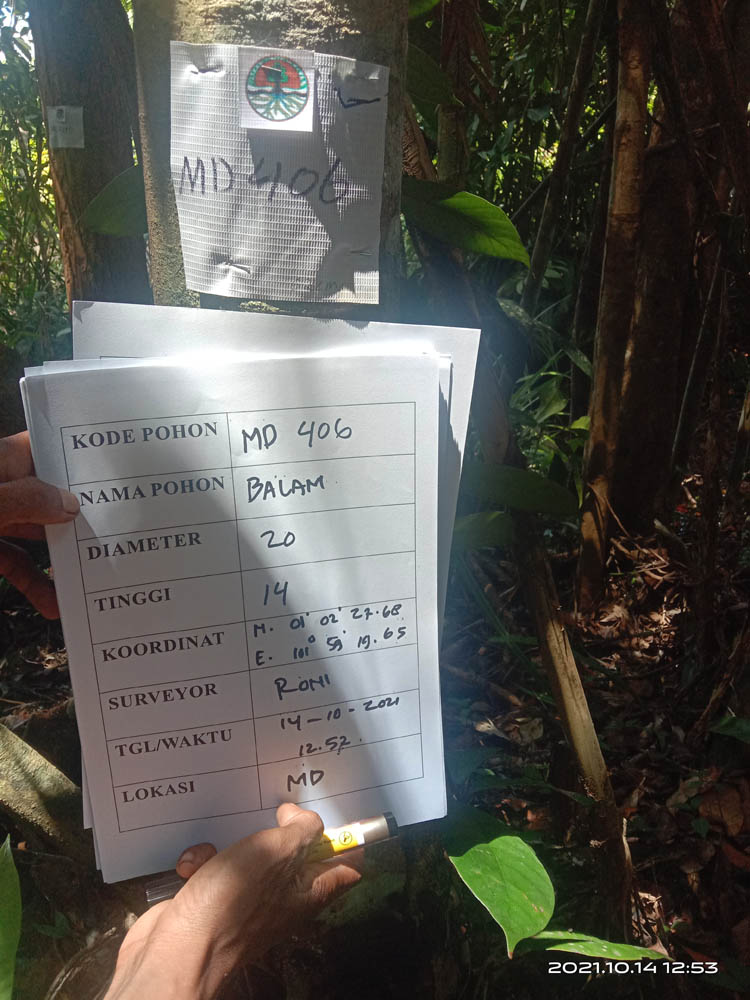 MD 406
KODE POHON MD 406
NAMA POHON BALAM
DIAMETER 20
TINGGI 14
KOORDINAT N. 01° 02' 27.68
E. 101° 59' 19.65
SURVEYOR RONI
TGL/WAKTU 14-10-2021
12.52.
LOKASI MD
2021.10.14 12:53